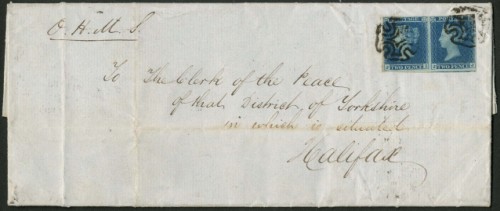 O. H. M. S.
To The Clerk of the Peace
of that District, of Yorkshire
in which is situated
Halifax
TWO PENCE TWO PENCE